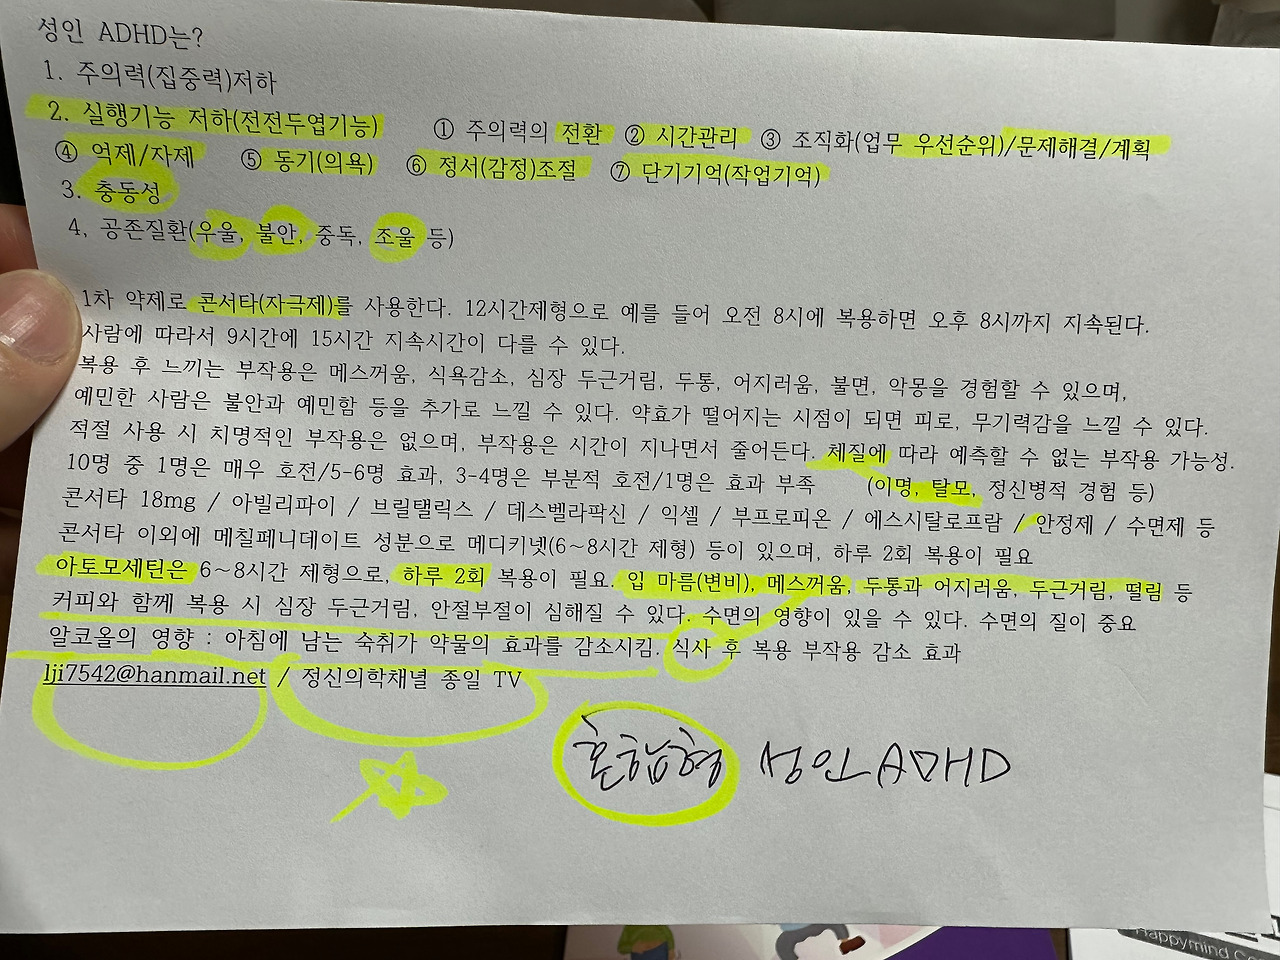 성인 ADHD는?
1. 주의력(집중력)저하
2. 실행기능 저하(전전두엽기능) ① 주의력의 전환 ② 시간관리 ③ 조직화(업무 우선순위)/문제해결/계획
④ 억제/자제 ⑤ 동기(의욕) ⑥ 정서(감정)조절 ⑦ 단기기억(작업기억)
3. 충동성
4, 공존질환(우울, 불안, 중독, 조울 등)
1차 약제로 콘서타(자극제)를 사용한다. 12시간제형으로 예를 들어 오전 8시에 복용하면 오후 8시까지 지속된다.
사람에 따라서 9시간에 15시간 지속시간이 다를 수 있다.
복용 후 느끼는 부작용은 메스꺼움, 식욕감소, 심장 두근거림, 두통, 어지러움, 불면, 악몽을 경험할 수 있으며,
예민한 사람은 불안과 예민함 등을 추가로 느낄 수 있다. 약효가 떨어지는 시점이 되면 피로, 무기력감을 느낄 수 있다.
적절 사용 시 치명적인 부작용은 없으며, 부작용은 시간이 지나면서 줄어든다. 체질에 따라 예측할 수 없는 부작용 가능성.
10명 중 1명은 매우 호전/5-6명 효과, 3-4명은 부분적 호전/1명은 효과 부족 (이명, 탈모, 정신병적 경험 등)
콘서타 18mg / 아빌리파이 / 브릴탤릭스 / 데스벨라팍신 / 익셀 / 부프로피온 / 에스시탈로프람 / 안정제 / 수면제 등
콘서타 이외에 메칠페니데이트 성분으로 메디키넷(6~8시간 제형) 등이 있으며, 하루 2회 복용이 필요
아토모세틴은 6~8시간 제형으로, 하루 2회 복용이 필요. 입 마름(변비), 메스꺼움, 두통과 어지러움, 두근거림, 떨림 등
커피와 함께 복용 시 심장 두근거림, 안절부절이 심해질 수 있다. 수면의 영향이 있을 수 있다. 수면의 질이 중요
알코올의 영향 : 아침에 남는 숙취가 약물의 효과를 감소시킴. 식사 후 복용 부작용 감소 효과
lji7542@hanmail.net / 정신의학채널 종일 TV
혼합형 성인 ADHD
Happymind